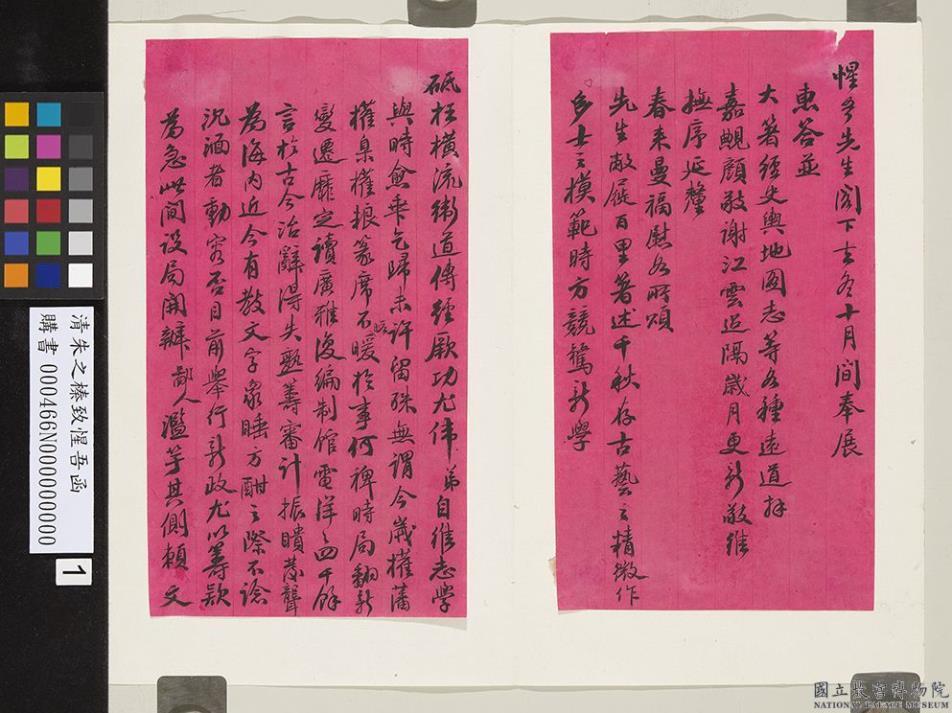 惺吾先生閣下去冬十月間奉展
惠答並
大著經史輿地圖志等各種遠道拜
嘉鯢顏敬謝江雲迢隔歲月更新敬維
撫序延釐
春來曼福慰如所頌
先生敝屣百里著述千秋存古藝之精微作
多士之模範時方競騖新學
砥柱橫流衛道傳經厥功尤偉弟自維志學
與時愈乖乞歸未許留殊無謂今歲權藩
權臬權糧篆席不暇暖於事何裨時局翻新
變遷靡定讀廣雅復編制館電洋洋四千餘
言於古今治辭得失熟籌審計振聵發聾
為海內近今有數文字眾睡方酣之際不諗
沉湎者動容否目前舉行新政尤以籌款
為急此間設局開辦鄙人濫竽其側賴文
清朱之榛致惺吾函
購書 000466N000000000
1
國立故宮博物院
NATIONAL PALACE MUSEUM